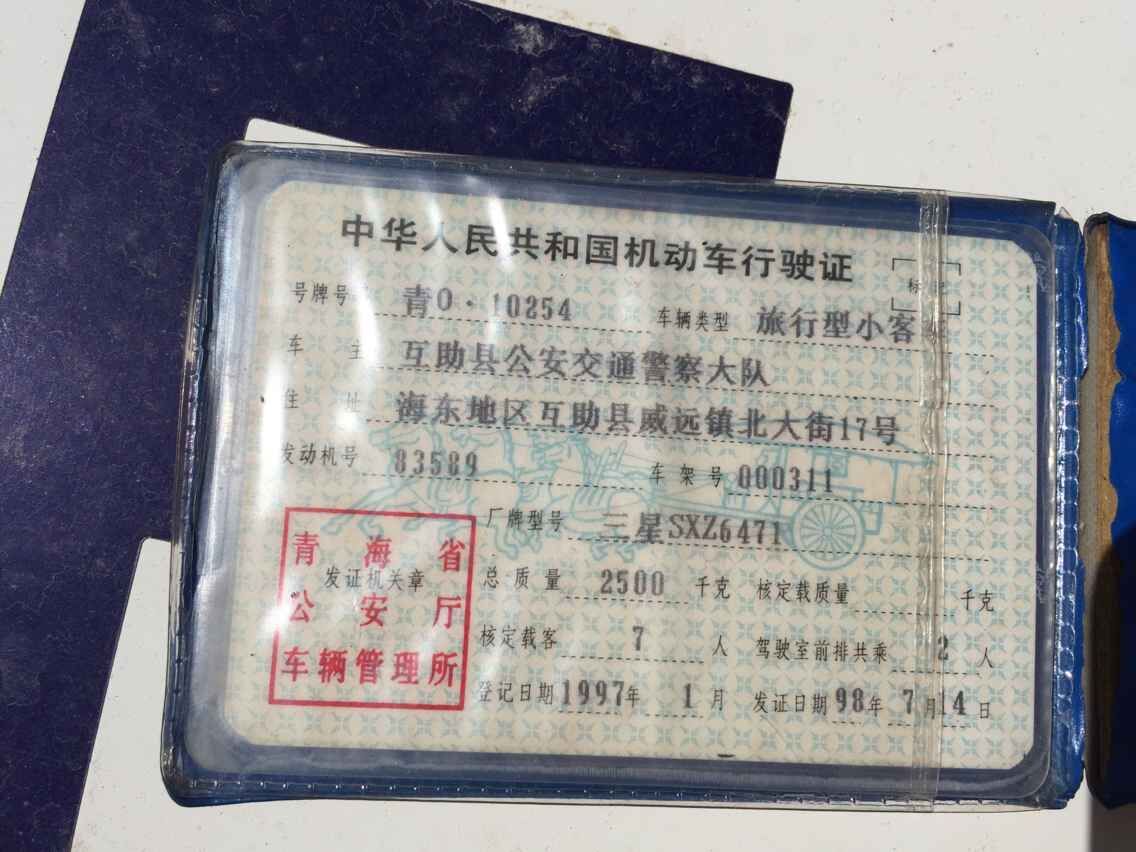 中华人民共和国机动车行驶证
号牌号 青O·10254 车辆类型 旅行型小客
车主 互助县公安交通警察大队
住址 海东地区互助县威远镇北大街17号
发动机号 83589 车架号 000311
厂牌型号 三星SXZ6471
青海省
公安厅
车辆管理所
发证机关章
总质量 2500 千克 核定载质量 千克
核定载客 7 人 驾驶室前排共乘 2 人
登记日期 1997年 1月 发证日期 98年 7月14日